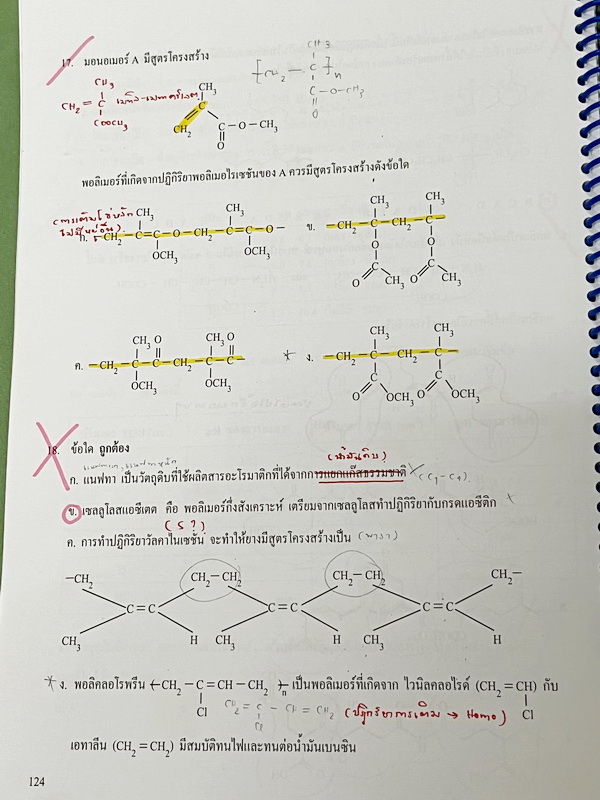 17. มอนอเมอร์ A มีสูตรโครงสร้าง
CH3
CH2 = C
COOCH3
[CH2 - C]n
CH3
C - O - CH3
O
CH3
C
CH2
C - O - CH3
O
พอลิเมอร์ที่เกิดจากปฏิกิริยาพอลิเมอไรเซชันของ A ควรมีสูตรโครงสร้างดังข้อใด
CH3 CH3
ก. CH2 - C = C - O - CH2 - C = C - O -
OCH3 OCH3
CH3 CH3
ข. - CH2 - C - CH2 - C -
O O
C C
O CH3 O CH3
CH3 O CH3 O
ค. - CH2 - C - C - CH2 - C - C -
OCH3 OCH3
CH3 CH3
ง. - CH2 - C - CH2 - C -
C C
O OCH3 O OCH3
18. ข้อใด ถูกต้อง
(น้ำมันดิบ)
ก. แนฟทา เป็นวัตถุดิบที่ใช้ผลิตสารอะโรมาติกที่ได้จากการแยกแก๊สธรรมชาติ (C1-C4)
ข. เซลลูโลสแอซีเตต คือ พอลิเมอร์กึ่งสังเคราะห์ เตรียมจากเซลลูโลสทำปฏิกิริยากับกรดแอซีติก
(S?)
ค. การทำปฏิกิริยาวัลคาไนเซชัน จะทำให้ยางมีสูตรโครงสร้างเป็น
-CH2 CH2-CH2 CH2-CH2 CH2-
C = C C = C C = C
CH3 H CH3 H CH3 H
ง. พอลิคลอโรพรีน -(CH2 - C = CH - CH2)-n เป็นพอลิเมอร์ที่เกิดจาก ไวนิลคลอไรด์ (CH2 = CH) กับ
Cl Cl
CH2 = C - CH = CH2 (ปฏิกิริยาการเติม → Homo)
Cl
เอทาลีน (CH2 = CH2) มีสมบัติทนไฟและทนต่อน้ำมันเบนซิน
124